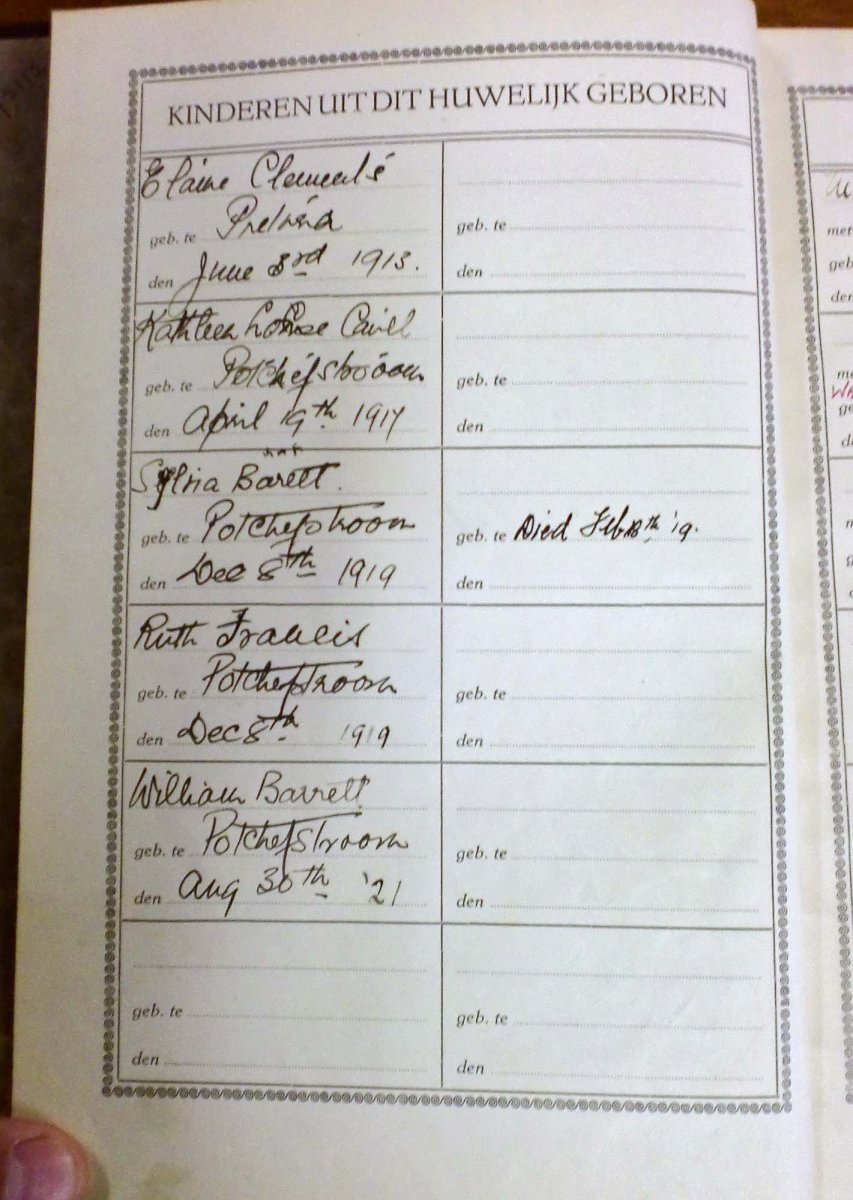 KINDEREN UIT DIT HUWELIJK GEBOREN
Elaine
geb. te Pretoria
den June 3rd 1913.
Kathleen Louise Cavell
geb. te Potchefstroom
den April 19th 1917
Sylvia Barett.
geb. te Potchefstroom
den Dec 8th 1919
Ruth Francis
geb. te Potchefstroom
den Dec 8th 1919
William Barrett
geb. te Potchefstroom
den Aug 30th '21
geb. te
den
geb. te
den
geb. te
den
geb. te Died Feb 18th '19.
den
geb. te
den
geb. te
den
geb. te
den
met
geb
den